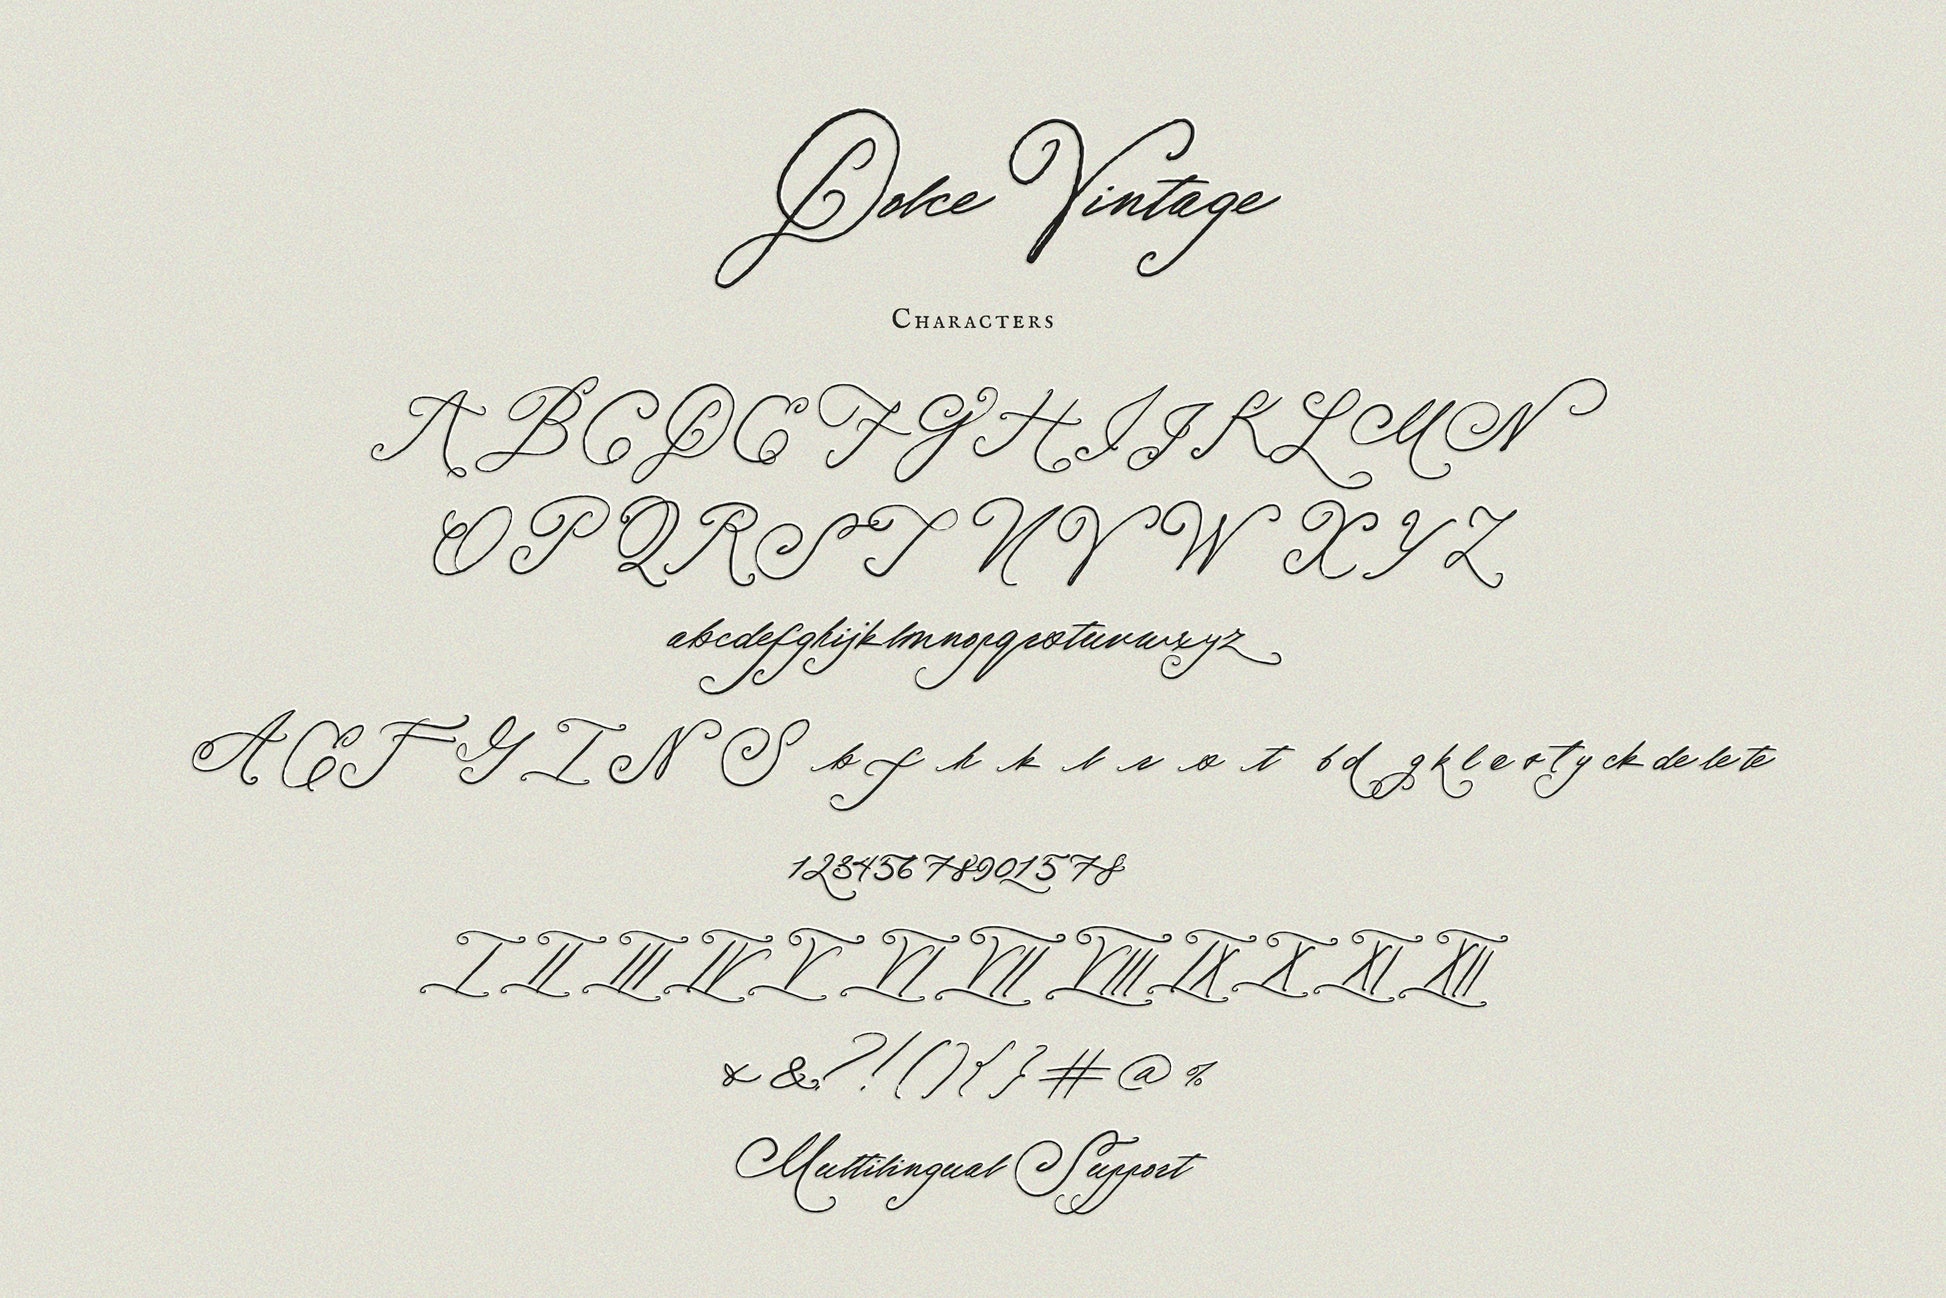 Dolce Vintage
Characters
A B C D E F G H I J K L M N
O P Q R S T U V W X Y Z
abcdefghijklmnopqrstuvwxyz
A E F G I N S b f h k l r s t b d g k l e s t y ck de le te
12345678901578
I II III IV V VI VII VIII IX X XI XII
& &?!(){}#@%
Multilingual Support